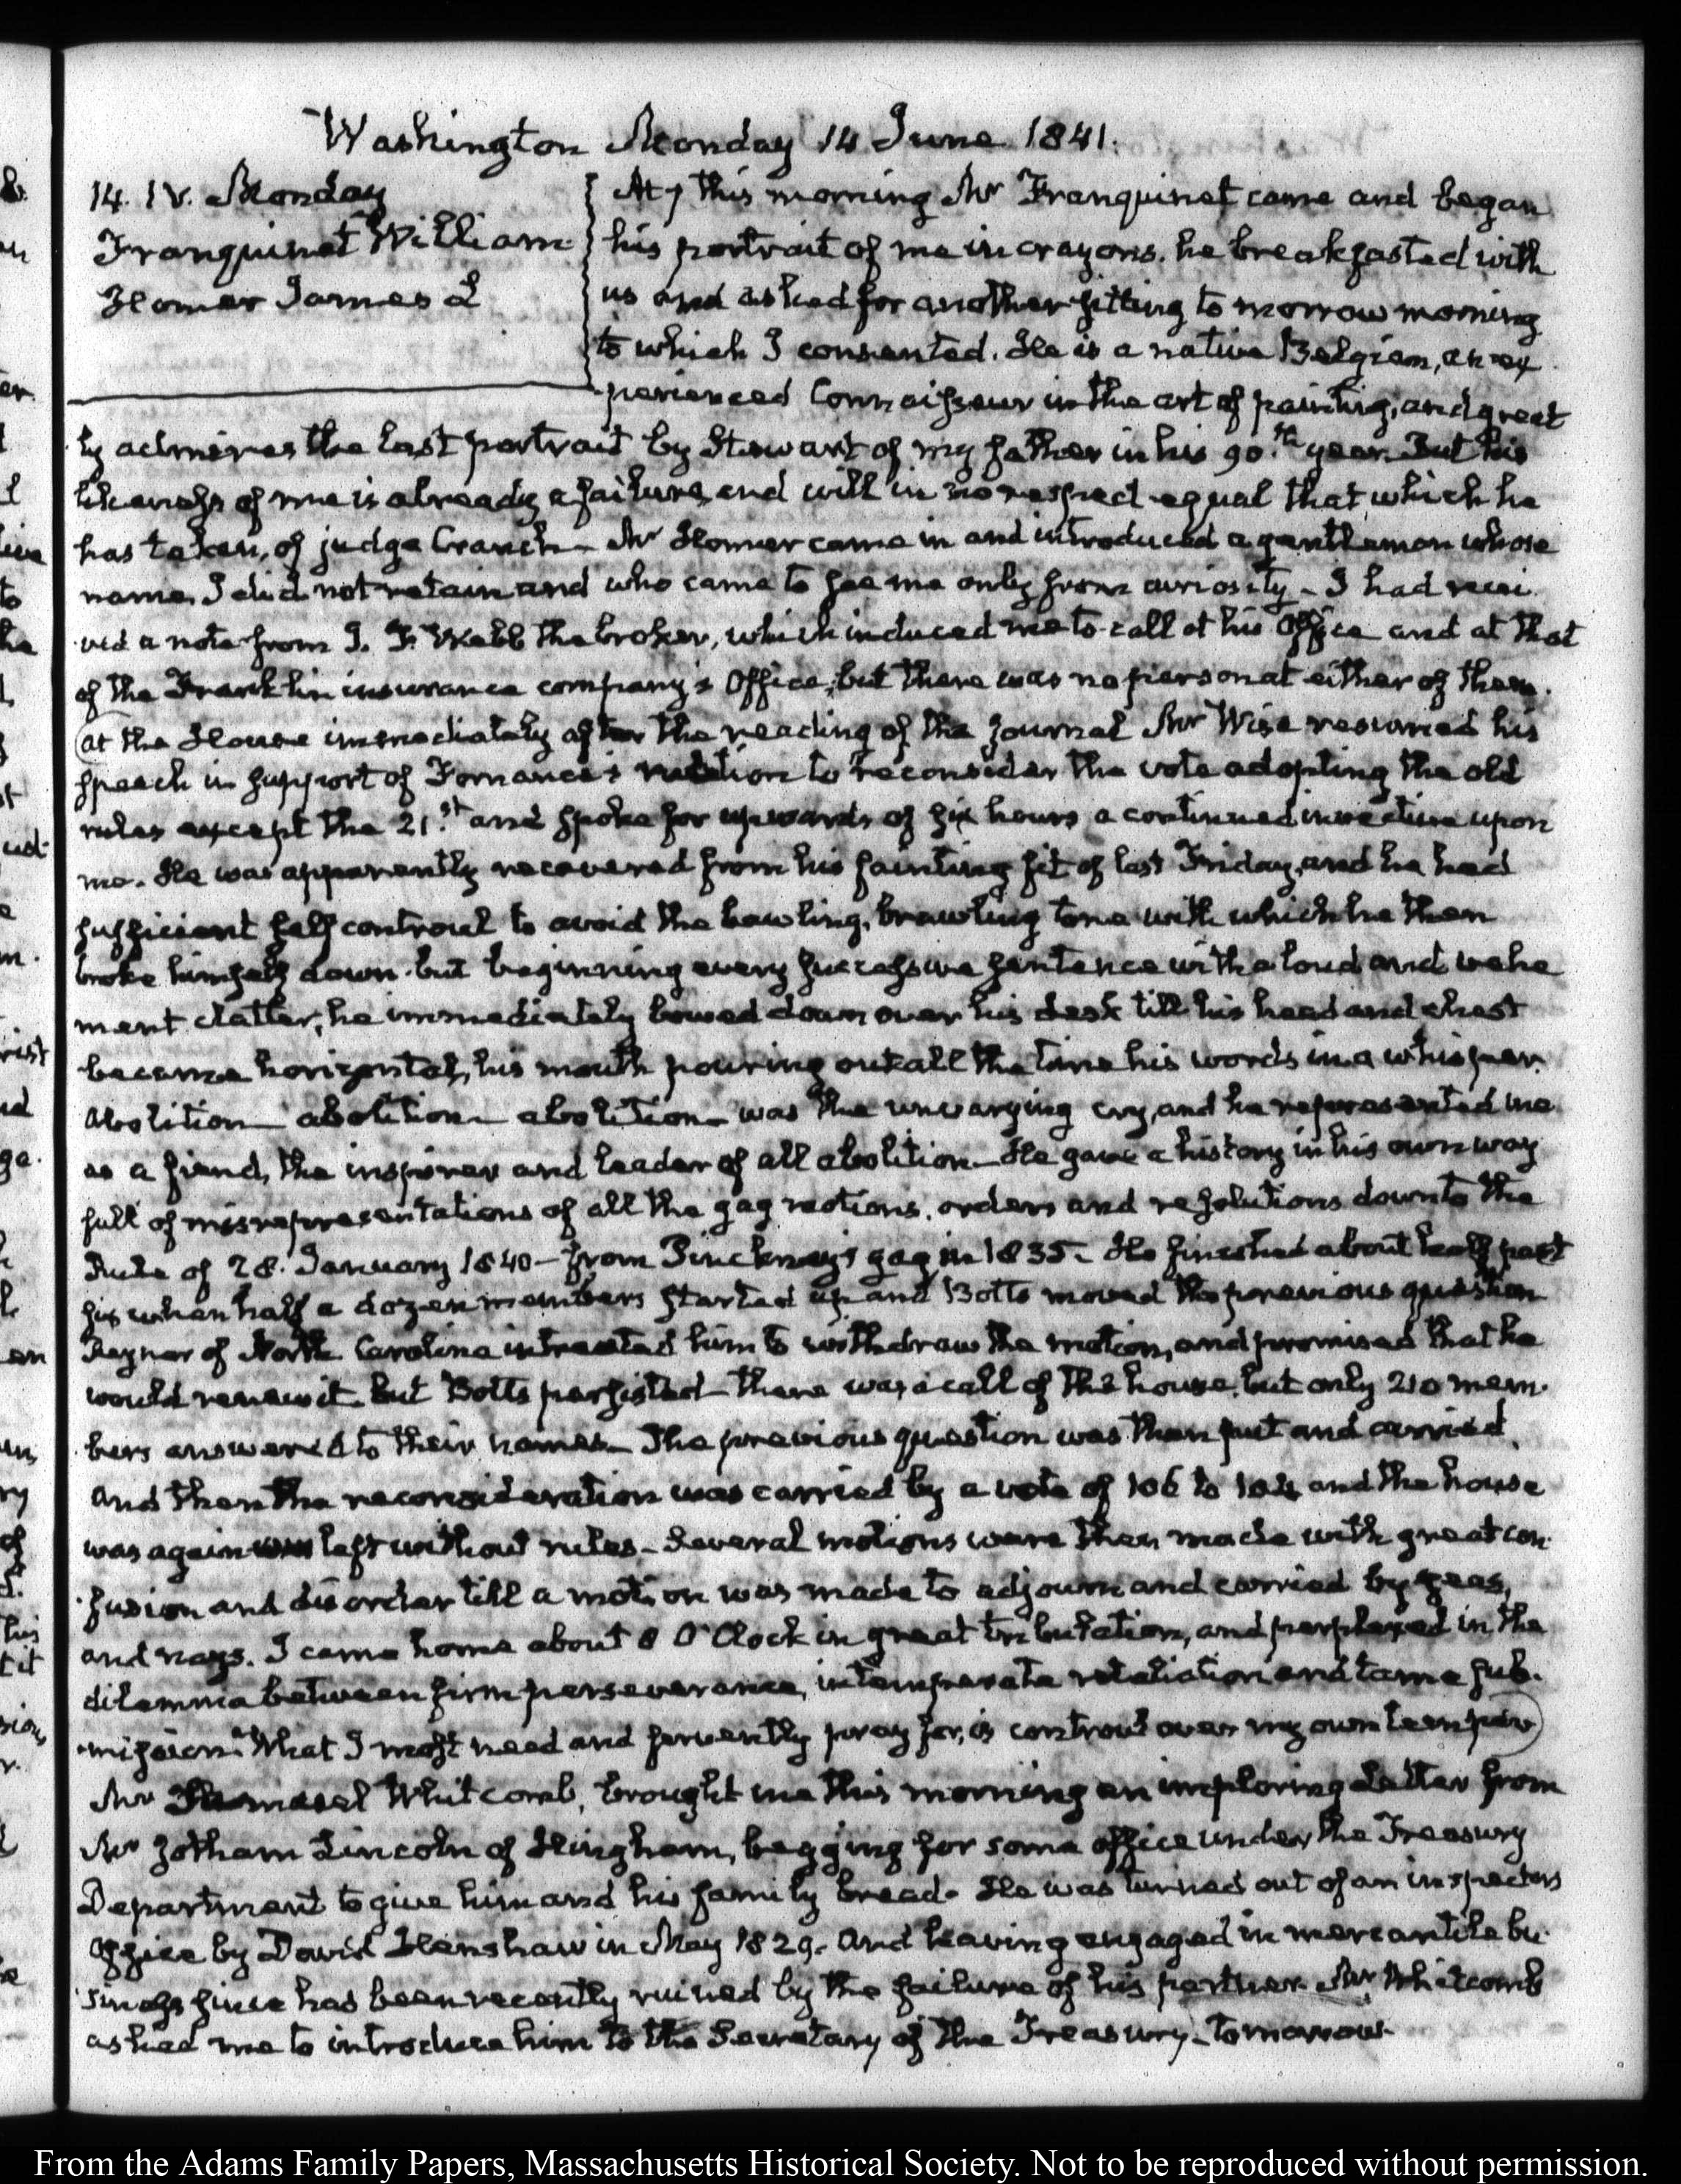 Washington Monday 14 June 1841.
14. IV. Monday
Franquinet William
Homer James L
At 7 this morning Mr Franquinet came and began
his portrait of me in crayons. he breakfasted with
us and asked for another sitting to morrow morning
to which I consented. He is a native Belgian, an ex
perienced Connoisseur in the art of painting, and great
ly admires the last portrait by Stewart of my father in his 90.th year. But his
likeness of me is already a failure, and will in no respect equal that which he
has taken, of judge Cranch. Mr Homer came in and introduced a gentleman whose
name, I did not retain and who came to see me only from curiosity – I had recei
ved a note from J. F. Webb the broker, which induced me to call at his Office and at that
of the Franklin insurance company's Office, but there was no person at either of them.
At the House immediately after the reading of the journal Mr Wise resumed his
speech in support of Fornance's motion to reconsider the vote adopting the old
rules except the 21.st and spoke for upwards of six hours a continued invective upon
me. He was apparently recovered from his fainting fit of last Friday, and he had
sufficient self controul to avoid the bawling, brawling tone with which he then
broke himself down. but beginning every successive sentence with a loud and vehe
ment clatter, he immediately bowed down over his desk till his head and chest
became horizontal, his mouth pouring out all the time his words in a whisper.
Abolition – abolition – abolition – was the unvarying cry, and he represented me
as a fiend, the inspirer and leader of all abolition – He gave a history in his own way
full of misrepresentations of all the gag motions, orders and resolutions down to the
Rule of 28. January 1840 – from Pinckney's gag in 1835. He finished about half past
six when half a dozen members started up and Botts moved the previous question
Rayner of North Carolina intreated him to withdraw the motion, and promised that he
would renew it. but Botts persisted – there was a call of the house, but only 210 mem
bers answered to their names – The previous question was then put and carried,
and then the reconsideration was carried by a vote of 106 to 104 and the house
was again left without rules – Several motions were then made with great con
fusion and disorder till a motion was made to adjourn and carried by yeas,
and nays. I came home about 8 O'Clock in great tribulation, and perplexed in the
dilemma between firm perseverance, intemperate retaliation and tame sub
mission. What I most need and fervently pray for, is controul over my own temper
Mr Whitcomb, brought me this morning an imploring Letter from
Mr Jotham Lincoln of Hingham, begging for some office under the Treasury
Department to give him and his family bread. He was turned out of an inspectors
office by David Henshaw in May 1829. and having engaged in mercantile bu
siness since has been recently ruined by the failure of his partner. Mr Whitcomb
asked me to introduce him to the Secretary of the Treasury – tomorrow.
From the Adams Family Papers, Massachusetts Historical Society. Not to be reproduced without permission.